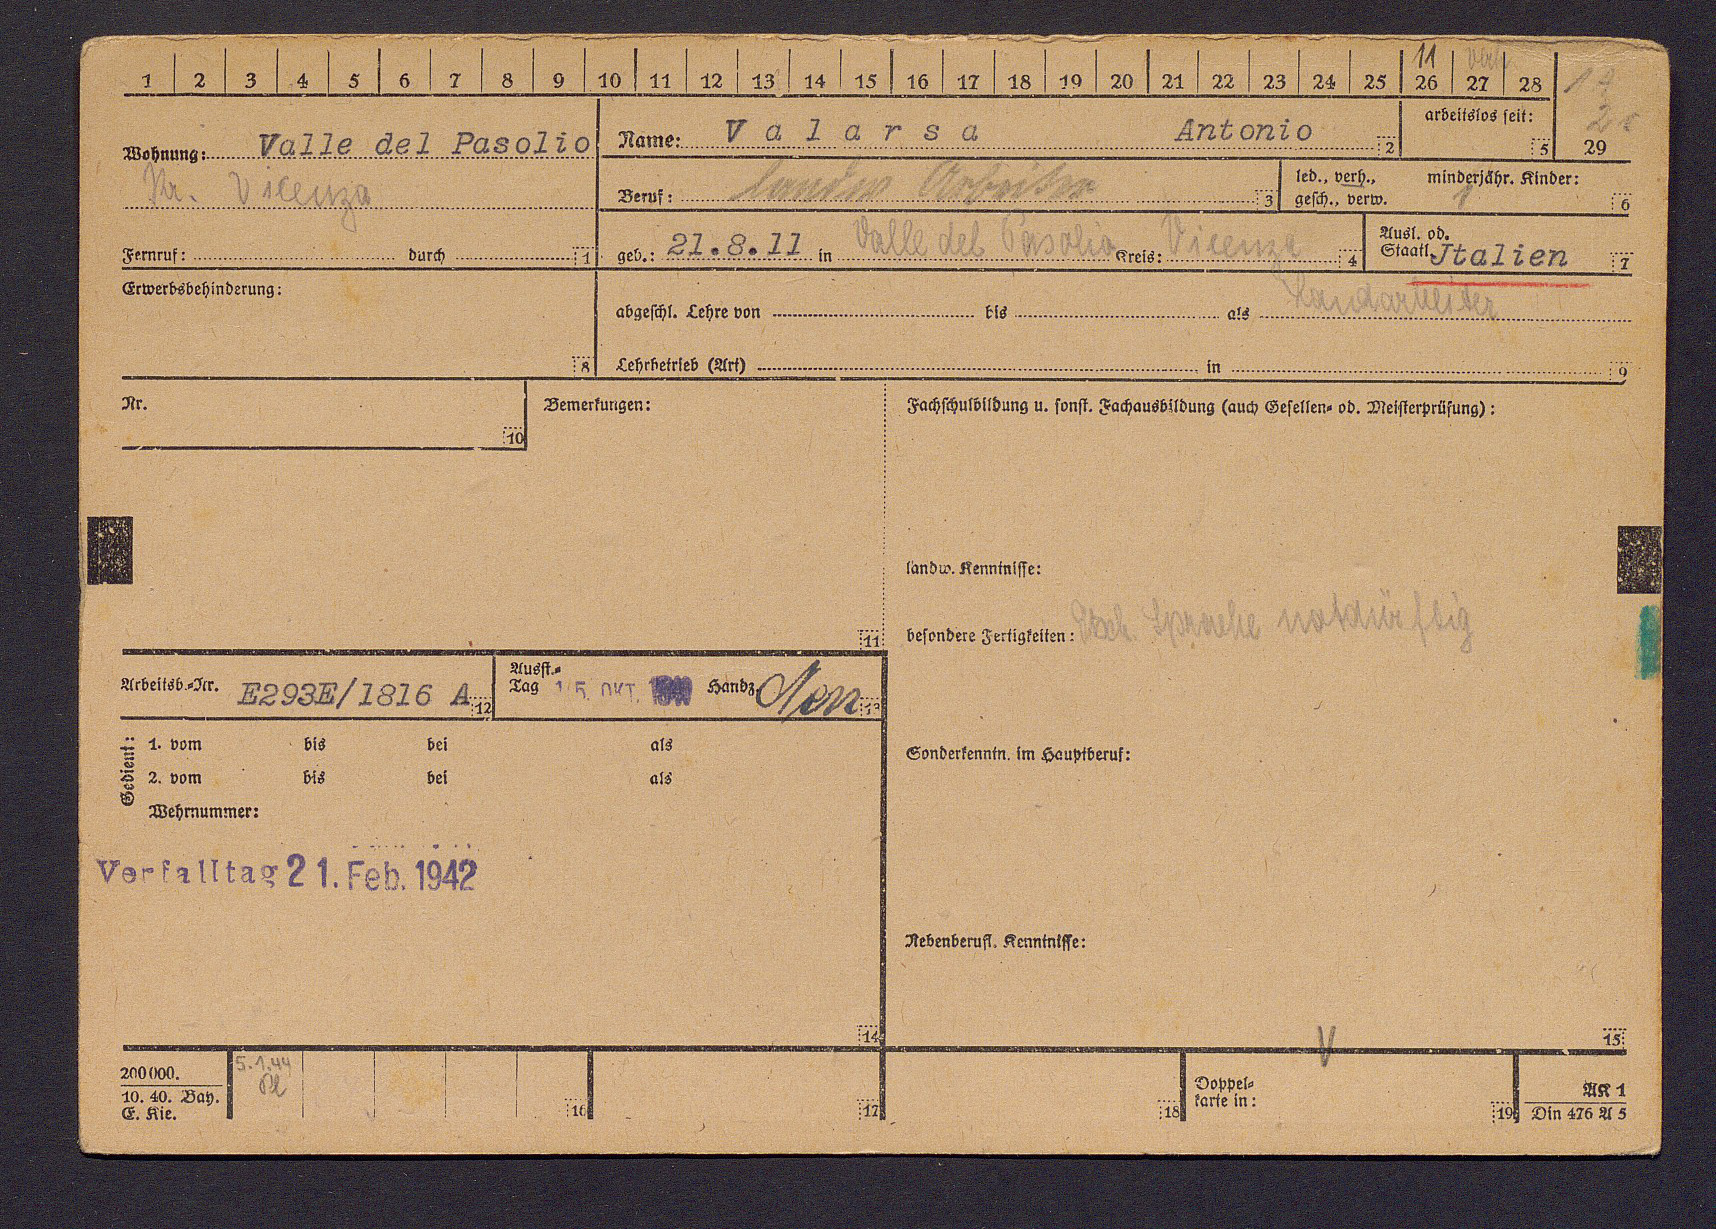 1 2 3 4 5 6 7 8 9 10 11 12 13 14 15 16 17 18 19 20 21 22 23 24 25 26 27 28
11
29
Wohnung: Valle del Pasolio
Kr. Vicenza
Fernruf: durch 1
Name: Valarsa Antonio 2
arbeitslos seit: 5
Beruf: landw Arbeiter 3
led., verh., gesch., verw. minderjähr. Kinder: 1 6
geb.: 21.8.11 in Valle del Pasolio Kreis: Vicenza 4
Ausl. od. Staatl. Jtalien 7
Erwerbsbehinderung: 8
abgeschl. Lehre von bis als Landarbeiter
Lehrbetrieb (Art) in 9
Nr. 10
Bemerkungen: 11
Fachschulbildung u. sonst. Fachausbildung (auch Gesellen- od. Meisterprüfung):
landw. Kenntnisse:
besondere Fertigkeiten: Dtsch. Sprache notdürftig
Arbeitsb.-Nr. E293E/1816 A 12
Ausst.-Tag 15. OKT. Handz. 13
Gedient:
1. vom bis bei als
2. vom bis bei als
Wehrnummer:
Verfalltag 21. Feb. 1942
14
Sonderkenntn. im Hauptberuf:
Nebenberufl. Kenntnisse:
V
15
200000.
10. 40. Bay.
E. Kie.
5.1.44
16 17 18
Doppelkarte in: 19
AK 1
Din 476 A 5